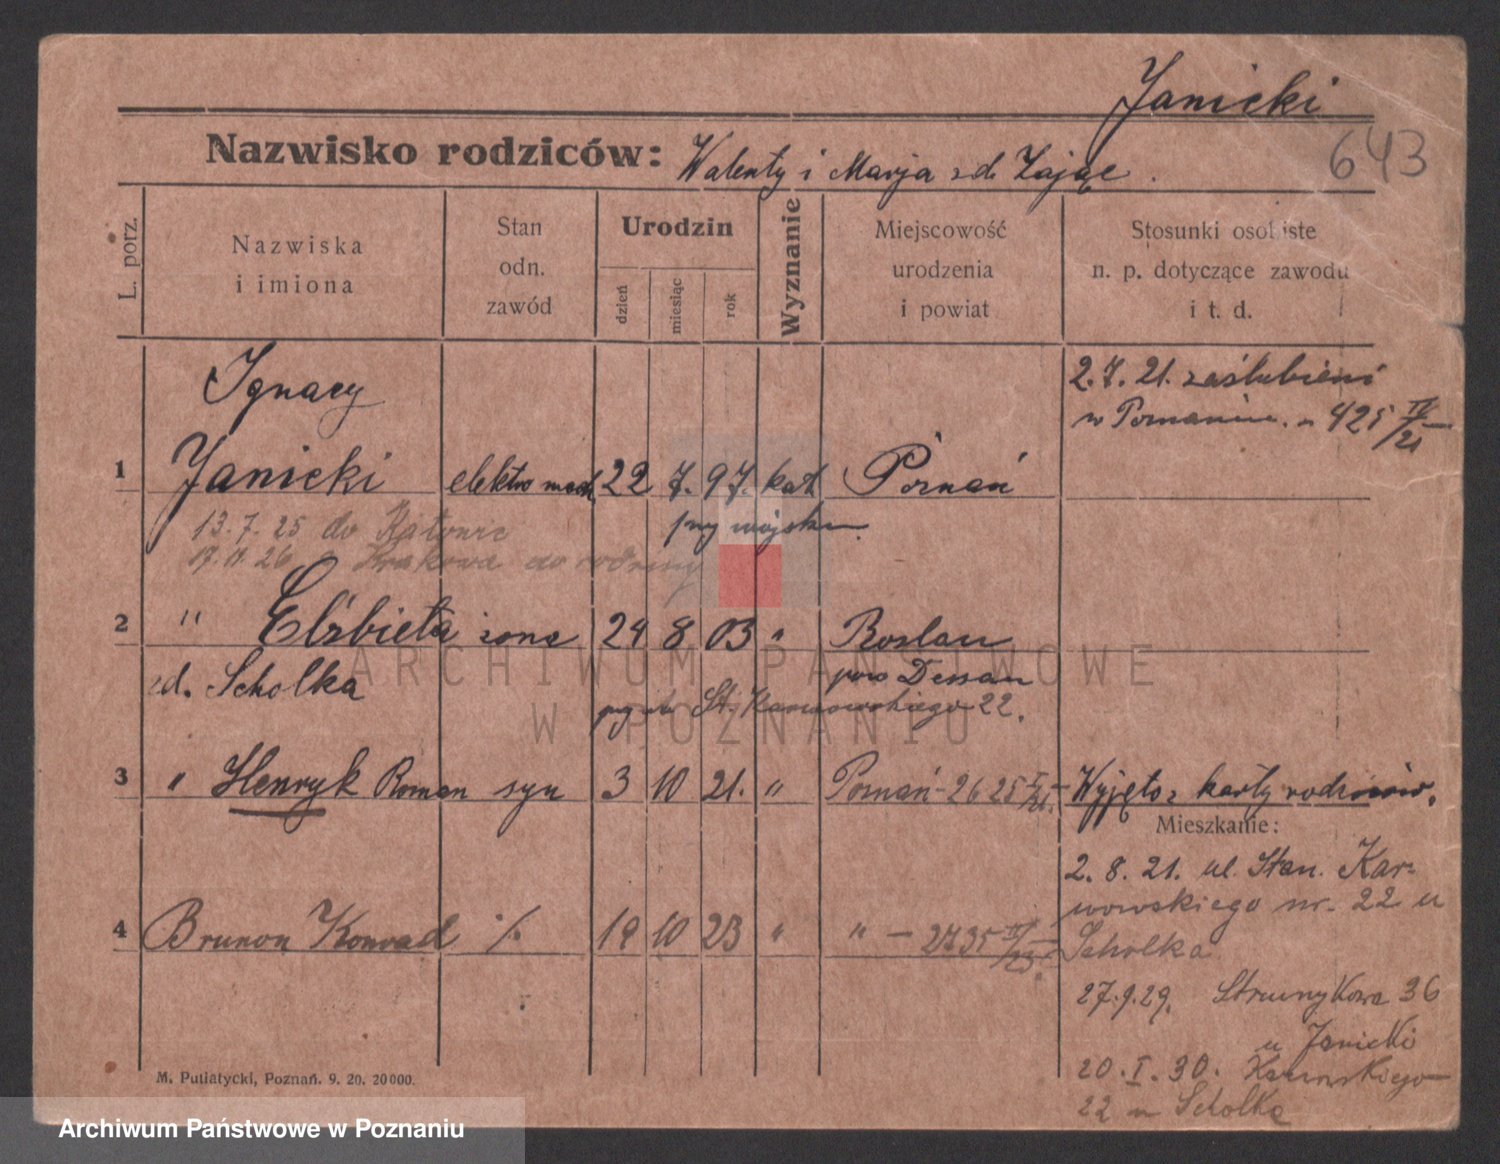 Janicki
643
Nazwisko rodziców: Walenty i Marja z d. Zając.
L. porz.
Nazwiska i imiona
Stan odn. zawód
Urodzin
dzień
miesiąc
rok
Wyznanie
Miejscowość urodzenia i powiat
Stosunki osobiste n. p. dotyczące zawodu i t. d.
2.7.21. zaślubieni
w Poznaniu. 425 IV/21
Ignacy
1 Janicki elektro mech 22 7. 97. kat Poznań
13.7.25 do Katowic
przy wojsku.
26 Krakowa do rodziny
2 " Elżbieta żona 24 8 03 " Roslau
zd. Scholka
pow Dessau
St. Karwowskiego 22.
3 " Henryk Roman syn 3 10 21. " Poznań - 2625 Wyjęto z karty rodziców.
Mieszkanie:
2.8.21. ul. Stan. Kar-
wowskiego nr. 22 u
4 Brunon Konrad ./. 19 10 23 " " - 2735
Scholka
27.9.29. Strumykowa 36
u Janicki
20.I.30. Karwowskiego
22 u Scholka
M. Putiatycki, Poznań. 9. 20. 20000.
ARCHIWUM PAŃSTWOWE
W POZNANIU
Archiwum Państwowe w Poznaniu